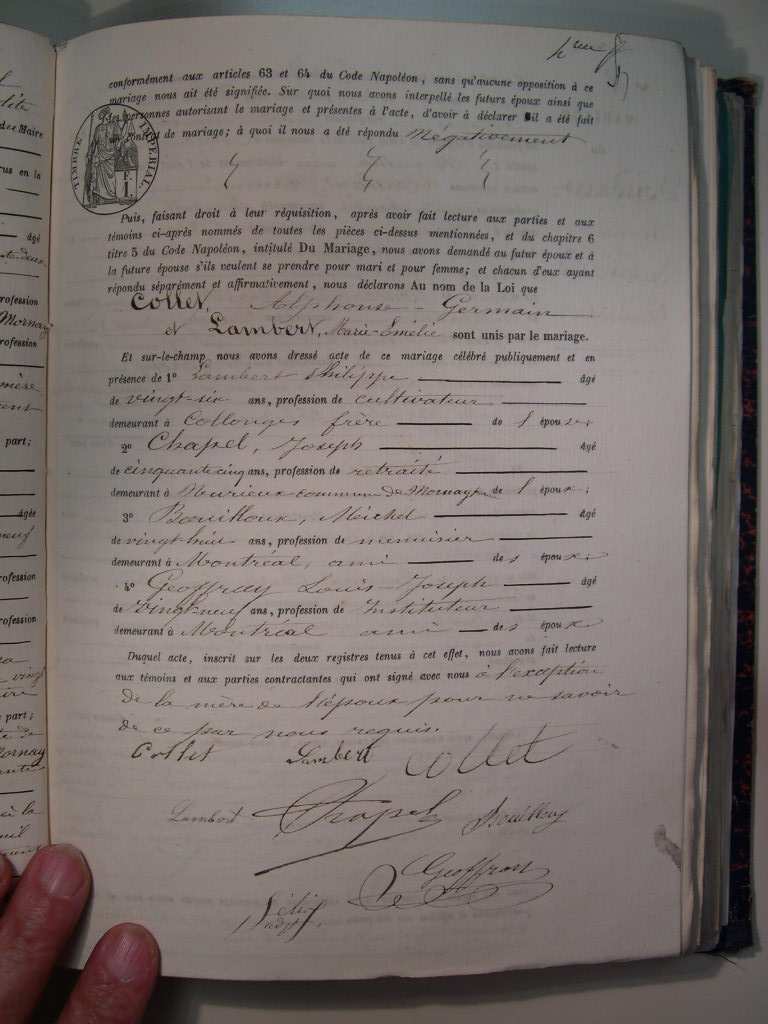 conformément aux articles 63 et 64 du Code Napoléon, sans qu'aucune opposition à ce
mariage nous ait été signifiée. Sur quoi nous avons interpellé les futurs époux ainsi que
les personnes autorisant le mariage et présentes à l'acte, d'avoir à déclarer s'il a été fait
un contrat de mariage; à quoi il nous a été répondu Négativement
TIMBRE IMPERIAL
Puis, faisant droit à leur réquisition, après avoir fait lecture aux parties et aux
témoins ci-après nommés de toutes les pièces ci-dessus mentionnées, et du chapitre 6
titre 5 du Code Napoléon, intitulé Du Mariage, nous avons demandé au futur époux et à
la future épouse s'ils veulent se prendre pour mari et pour femme; et chacun d'eux ayant
répondu séparément et affirmativement, nous déclarons Au nom de la Loi que
Collet, Alphonse-Germain
et Lambert, Marie-Emélie sont unis par le mariage.
Et sur-le-champ nous avons dressé acte de ce mariage célébré publiquement et en
présence de 1º Lambert Philippe âgé
de vingt-six ans, profession de cultivateur
demeurant à Collonges frère de l épouse;
2º Chapel, Joseph âgé
de cinquante cinq ans, profession de retraité
demeurant à Meurieux commune de Mornay de l époux;
3º Bouilloux, Michel âgé
de vingt-huit ans, profession de menuisier
demeurant à Montréal, ami de s époux;
4º Geoffray Louis-Joseph âgé
de vingt-neuf ans, profession de Instituteur
demeurant à Montréal ami de s époux
Duquel acte, inscrit sur les deux registres tenus à cet effet, nous avons fait lecture
aux témoins et aux parties contractantes qui ont signé avec nous à l'exception
de la mère de l'époux pour ne savoir
de ce par nous requis.
Collet Lambert Collet
Lambert Chapel Bouilloux
Geoffray